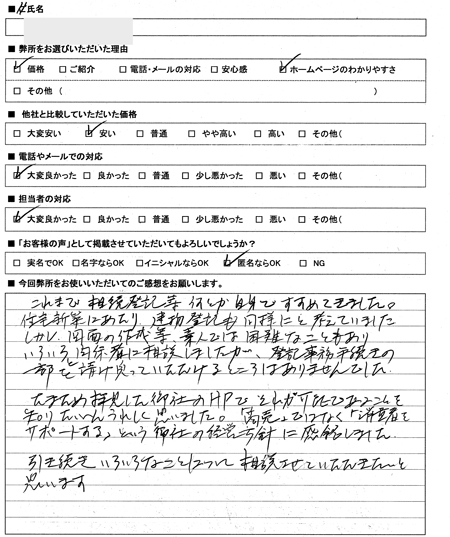 ■ 氏名
■ 弊所をお選びいただいた理由
☑ 価格 □ご紹介 □ 電話・メールの対応 □ 安心感 ☑ホームページのわかりやすさ
□ その他 ( )
■ 他社と比較していただいた価格
□ 大変安い ☑ 安い □ 普通 □ やや高い □ 高い □ その他(
■ 電話やメールでの対応
☑ 大変良かった □ 良かった □ 普通 □ 少し悪かった □ 悪い □ その他(
■ 担当者の対応
☑ 大変良かった □ 良かった □ 普通 □ 少し悪かった □ 悪い □ その他(
■「お客様の声」として掲載させていただいてもよろしいでしょうか?
□ 実名でOK □名字ならOK □イニシャルならOK ☑ 匿名ならOK □ NG
■ 今回弊所をお使いいただいてのご感想をお願いします。
これまで相続登記等何とか自身ですすめてきました。
住宅新築にあたり建物登記も同様にと考えていました
しかし、図面の作成等、素人には困難なこともあり
いろいろ関係者に相談しましたが、登記事務手続きの
一部を請け負っていただけるところはありませんでした。
たまたま拝見した御社のHPでそれが可能であることを
知りたいへんうれしく思いました。「商売」ではなく「消費者を
サポートする」という御社の経営方針に感銘しました。
引き続きいろいろなことについて相談させていただきたいと
思います